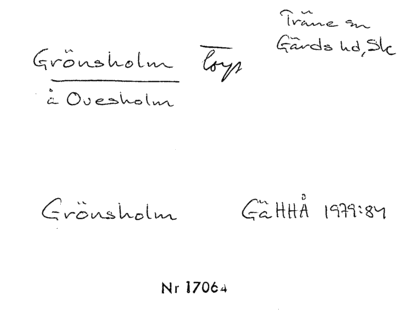 Träne sn
Gärds hd, Sk
Grönsholm torp
å Ovesholm
Grönsholm GäHHÅ 1979:84
Nr 17064